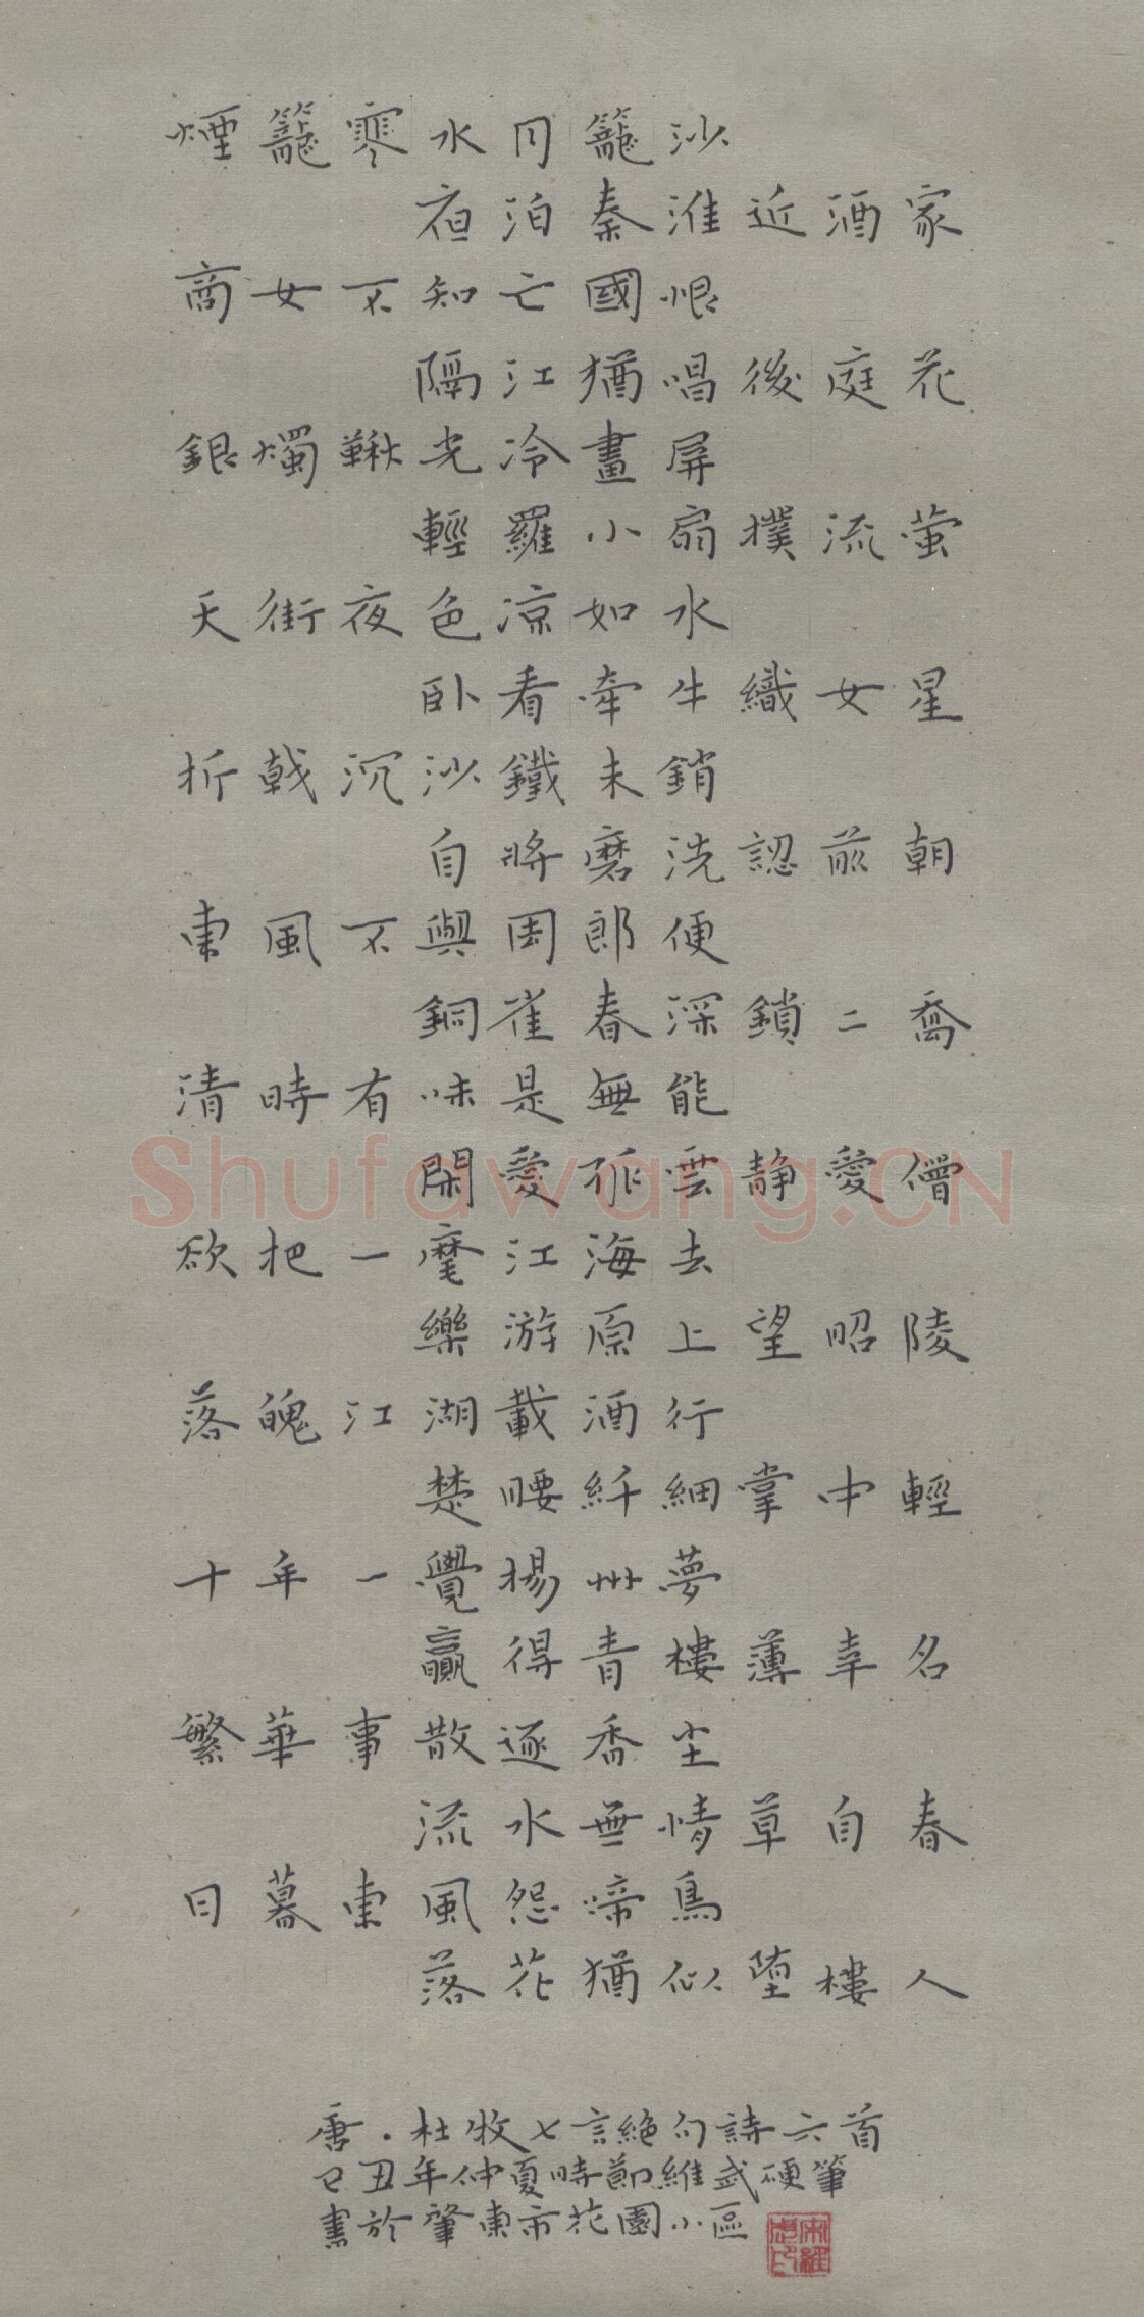 煙籠寒水月籠沙
夜泊秦淮近酒家
商女不知亡國恨
隔江猶唱後庭花
銀燭鞦光冷畫屏
輕羅小扇撲流螢
天街夜色涼如水
卧看牽牛織女星
折戟沉沙鐵未銷
自將磨洗認前朝
東風不與周郎便
銅雀春深鎖二喬
清時有味是無能
閑愛孤雲静愛僧
欲把一麾江海去
樂游原上望昭陵
落魄江湖載酒行
楚腰纤細掌中輕
十年一覺楊州夢
贏得青樓薄幸名
繁華事散逐香尘
流水無情草自春
日暮東風怨啼鳥
落花猶似墮樓人
唐·杜牧七言絕句詩六首
己丑年仲夏時節維武硬筆
書於肇東市花園小區
Shufawang.CN